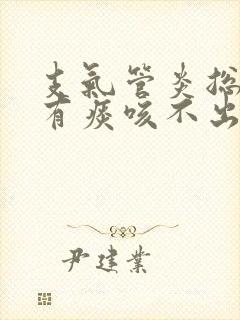 支氣管炎總
有痰咳不出
尹建業